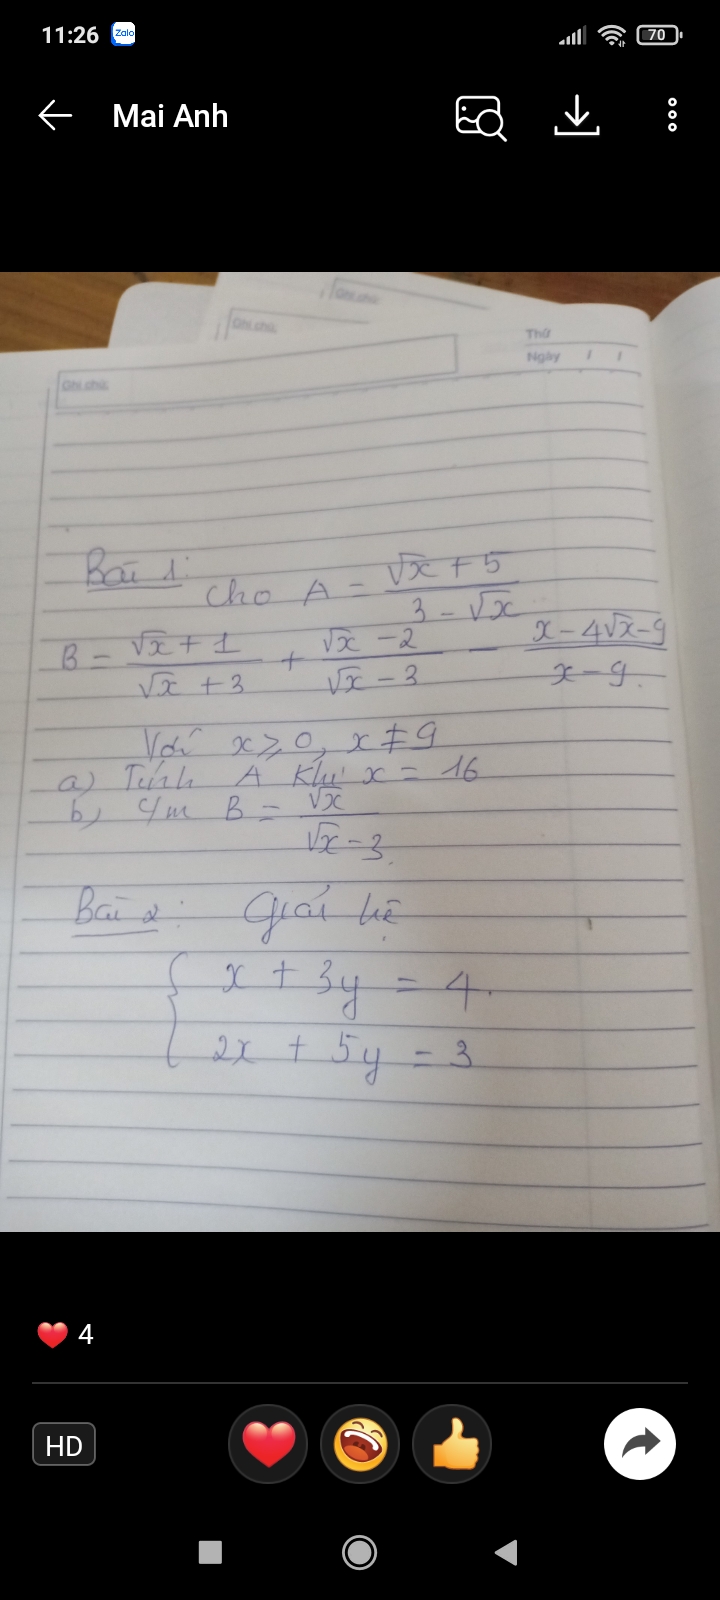 11:26 Zalo 70
Mai Anh
Ghi chú:
Ghi chú:
Thứ
Ngày / /
Ghi chú:
Bài 1:
Cho A = \frac{\sqrt{x} + 5}{3 - \sqrt{x}}
B = \frac{\sqrt{x} + 1}{\sqrt{x} + 3} + \frac{\sqrt{x} - 2}{\sqrt{x} - 3} - \frac{x - 4\sqrt{x} - 9}{x - 9}.
Với x ⩾ 0, x ≠ 9
a) Tính A khi x = 16
b) c/m B = \frac{\sqrt{x}}{\sqrt{x} - 3}.
Bài 2: Giải hệ
{ x + 3y = 4.
2x + 5y = 3
4
HD